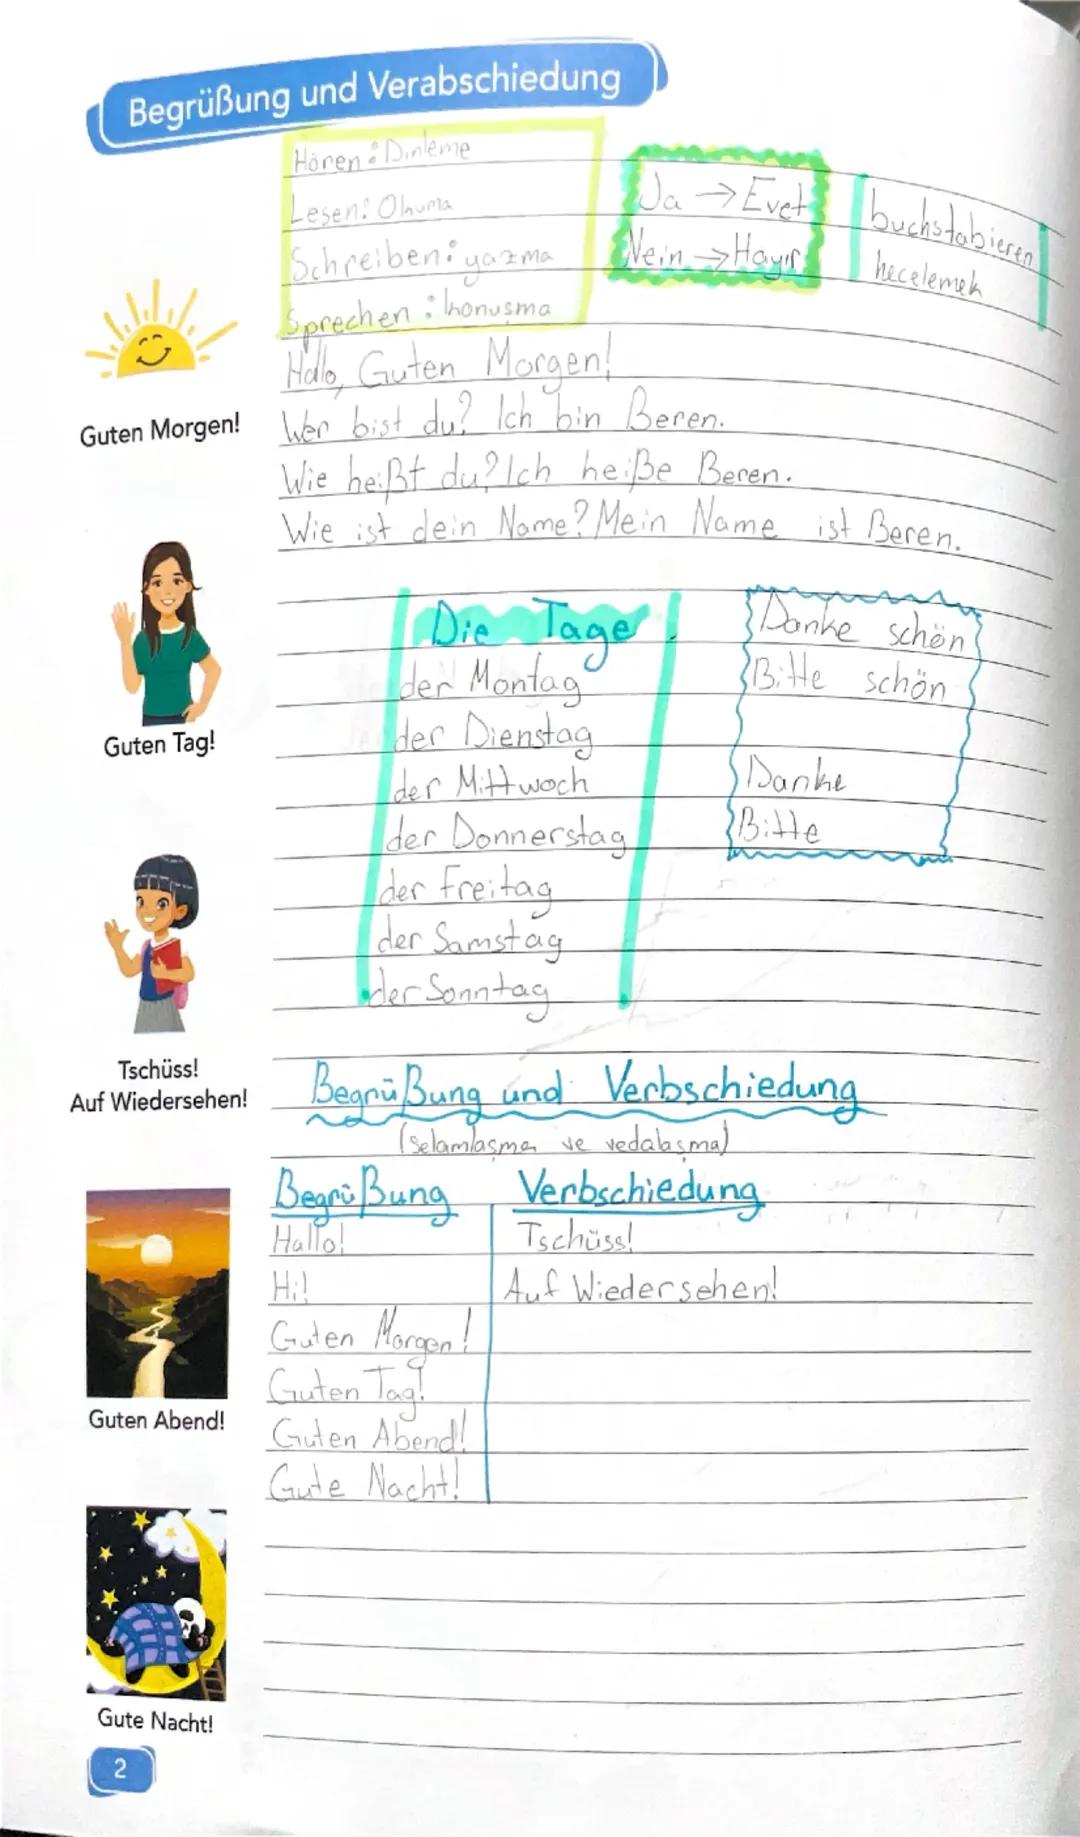 Begrüßung und Verabschiedung
Hören: Dinleme
Lesen: Okuma
Schreiben: yazma
Sprechen: konuşma
Ja → Evet
Nein → Hayır
buchstabieren
hecelemek
Guten Morgen!
Hallo, Guten Morgen!
Wer bist du? Ich bin Beren.
Wie heißt du? Ich heiße Beren.
Wie ist dein Name? Mein Name ist Beren.
Guten Tag!
Die Tage
der Montag
der Dienstag
der Mittwoch
der Donnerstag
der Freitag
der Samstag
der Sonntag
Danke schön
Bitte schön
Danke
Bitte
Tschüss!
Auf Wiedersehen!
Begrüßung und Verbschiedung
(selamlaşma ve vedalaşma)
Begrüßung
Hallo!
Hi!
Guten Morgen!
Guten Tag!
Guten Abend!
Gute Nacht!
Verbschiedung
Tschüss!
Auf Wiedersehen!
Guten Abend!
Gute Nacht!
2